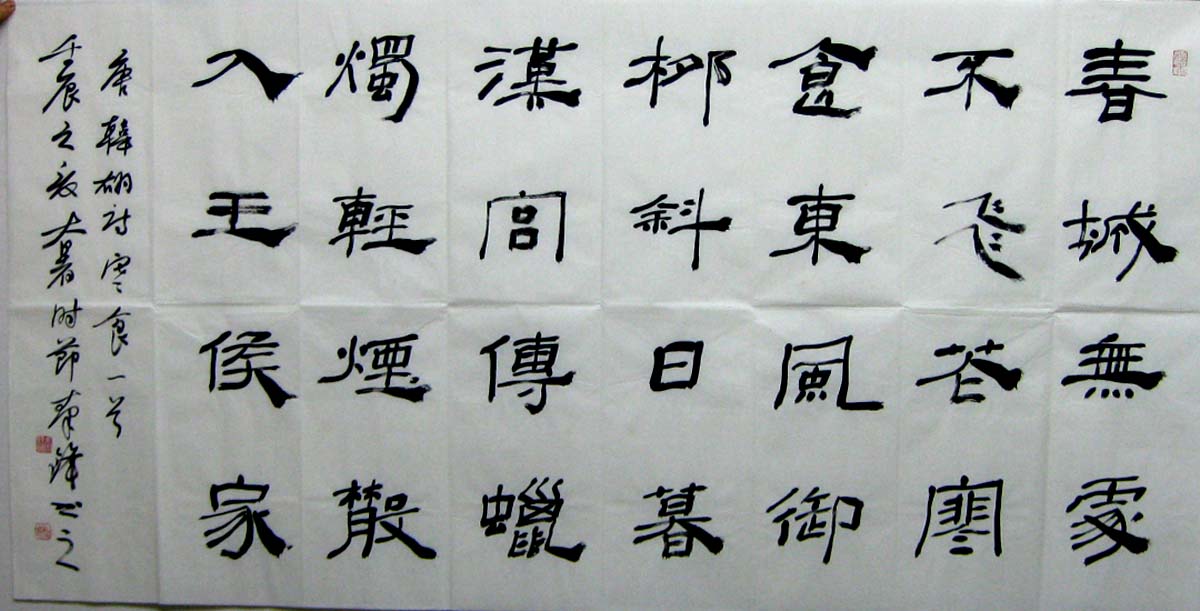 春城無處
不飛花寒
食東風御
柳斜日暮
漢宮傳蠟
燭輕煙散
入五侯家
唐韓翃詩寒食一首
壬辰之夏大暑时節鋒书之